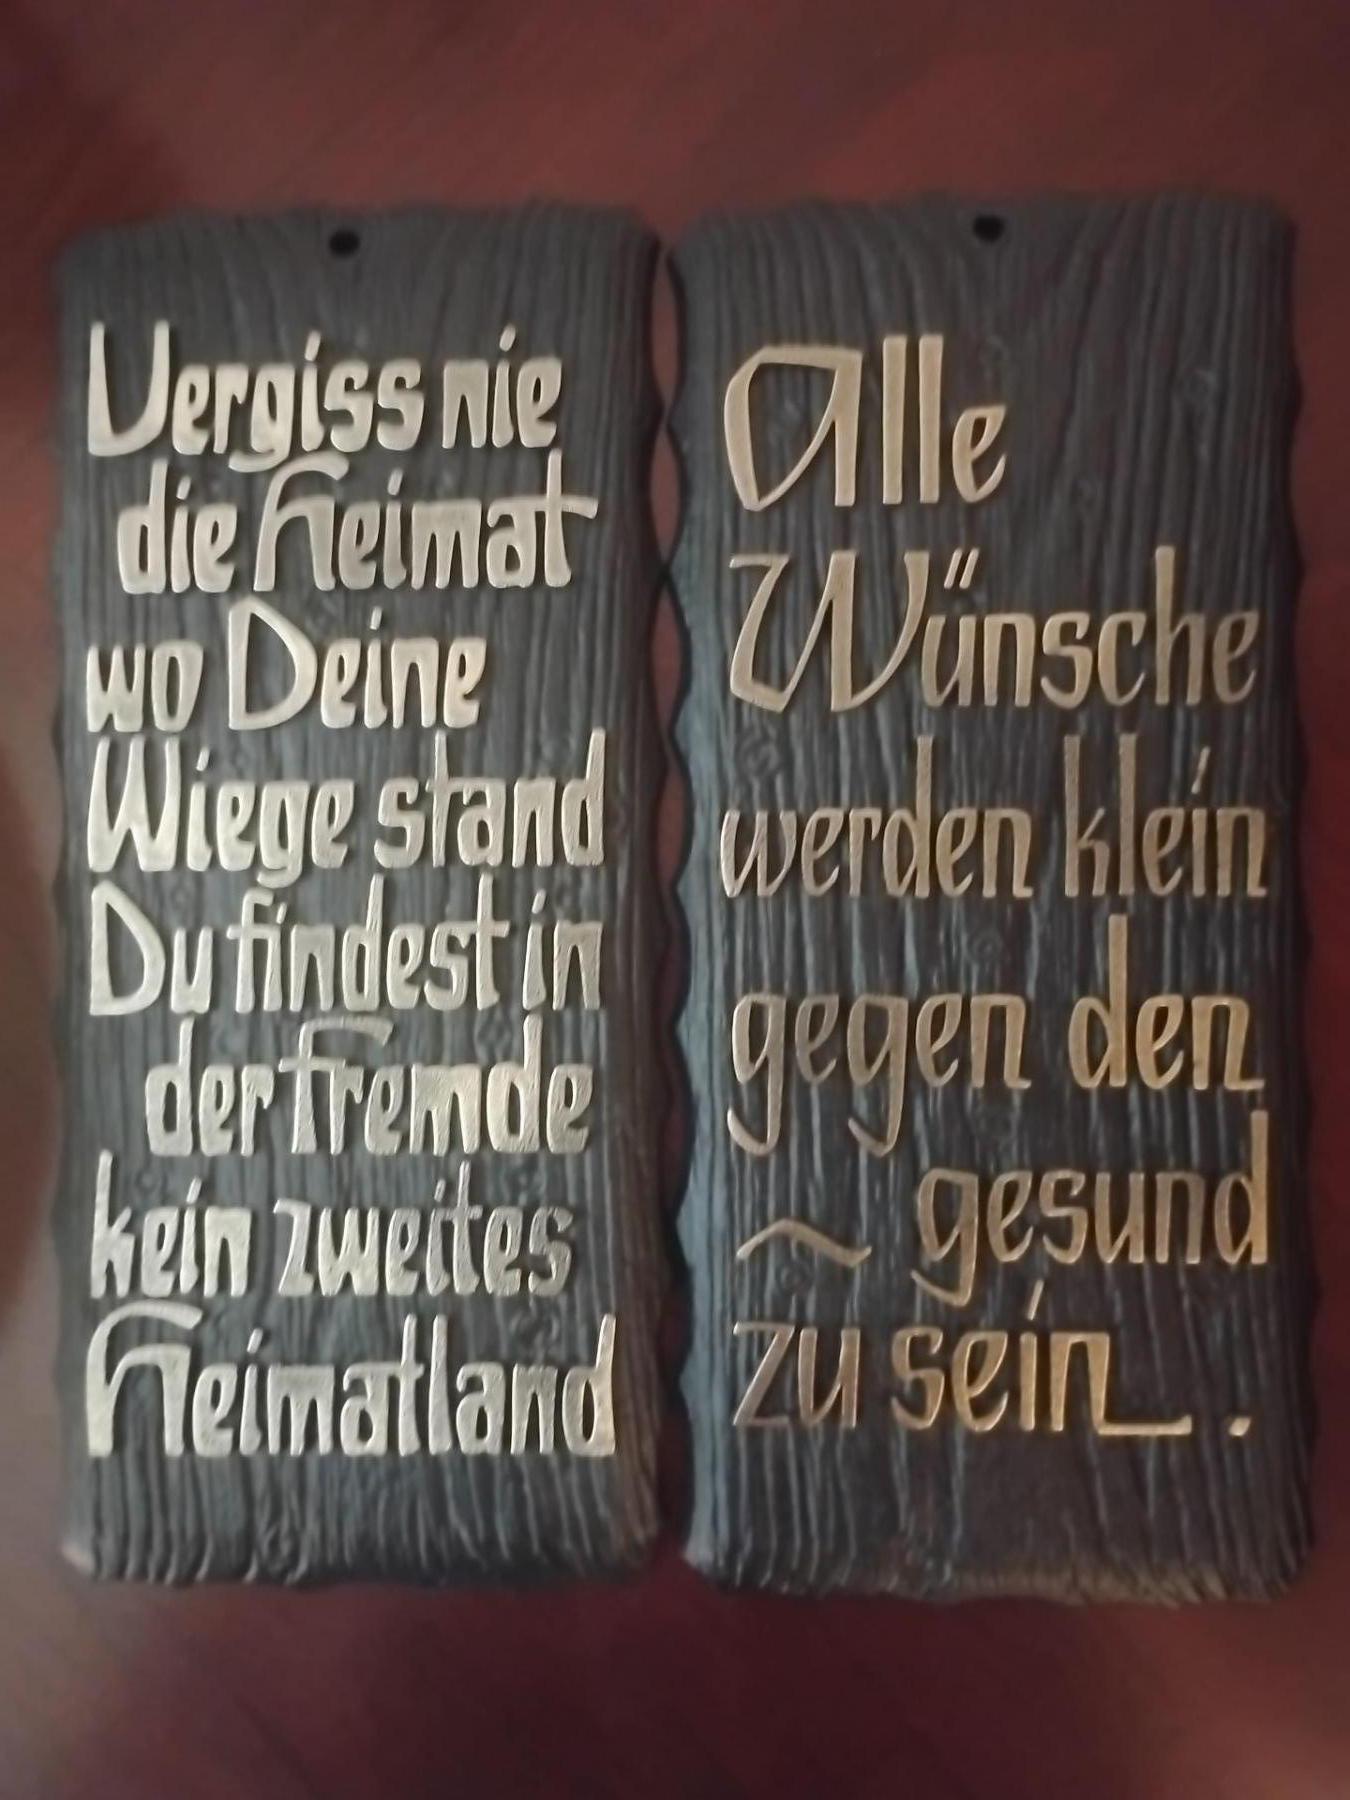 Vergiss nie
die Heimat
wo Deine
Wiege stand
Du findest in
der Fremde
kein zweites
Heimatland
Alle
Wünsche
werden klein
gegen den
~ gesund
zu sein.